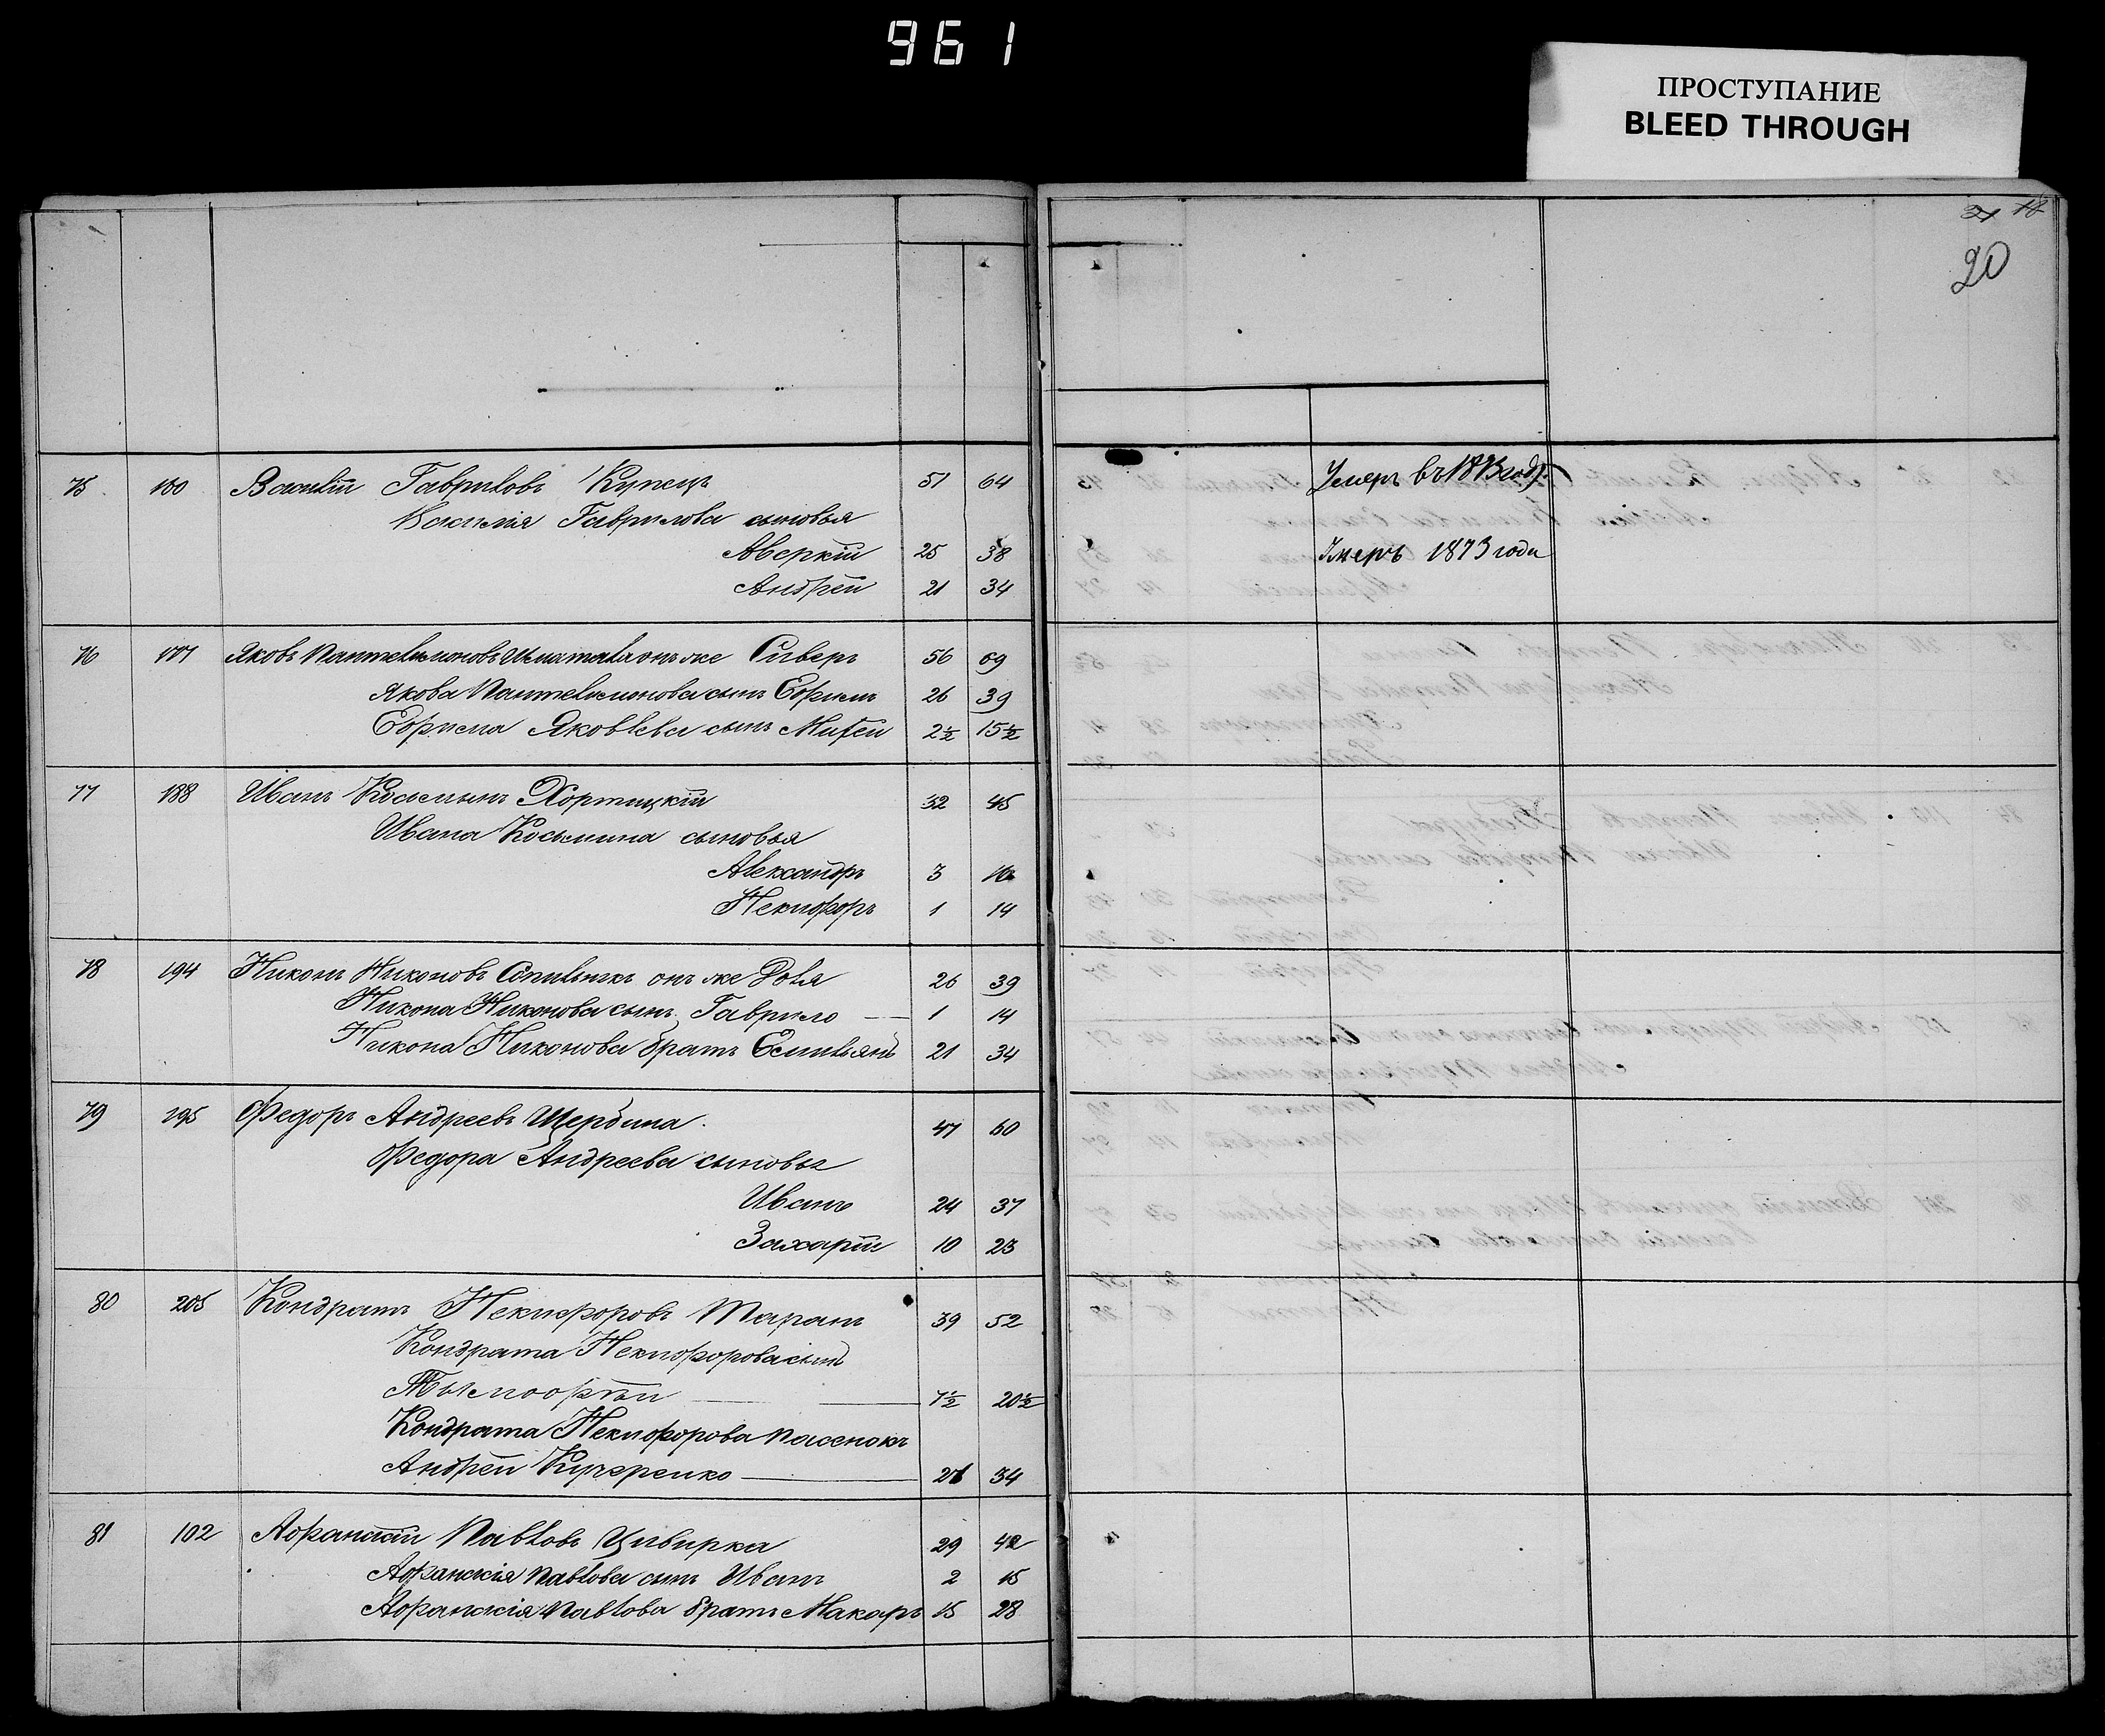 961
ПРОСТУПАНИЕ
BLEED THROUGH
20
75 180 Василій Гавриловъ Купецъ 51 64 Умеръ въ 1873 году
Василія Гаврилова сыновья
Аверкій 25 38 Умеръ 1873 года
Андрей 21 34
76 177 Яковъ Пантелимоновъ онъ же Сиверъ 56 69
Якова Пантелимонова сынъ Ефримъ 26 39
Ефрима Яковлева сынъ Мифей 2½ 15½
77 188 Иванъ Косьминъ Хортицкій 32 45
Ивана Косьмина сыновья
Александръ 3 16
Некифоръ 1 14
78 194 Никонъ Никоновъ Сопильникъ онъ же Доля 26 39
Никона Никонова сынъ Гаврило 1 14
Никона Никонова братъ Емильянъ 21 34
79 195 Федоръ Андреевъ Щербина 47 60
Федора Андреева сыновья
Иванъ 24 37
Захарій 10 23
80 205 Кондратъ Некифоровъ Таранъ 39 52
Кондрата Некифорова сынъ
Тымоофѣй 7½ 20½
Кондрата Некифорова пасенокъ
Андрей Кучеренко 21 34
81 102 Афанасій Павловъ Цивирка 29 42
Афанасія Павлова сынъ Иванъ 2 15
Афанасія Павлова братъ Макаръ 15 28